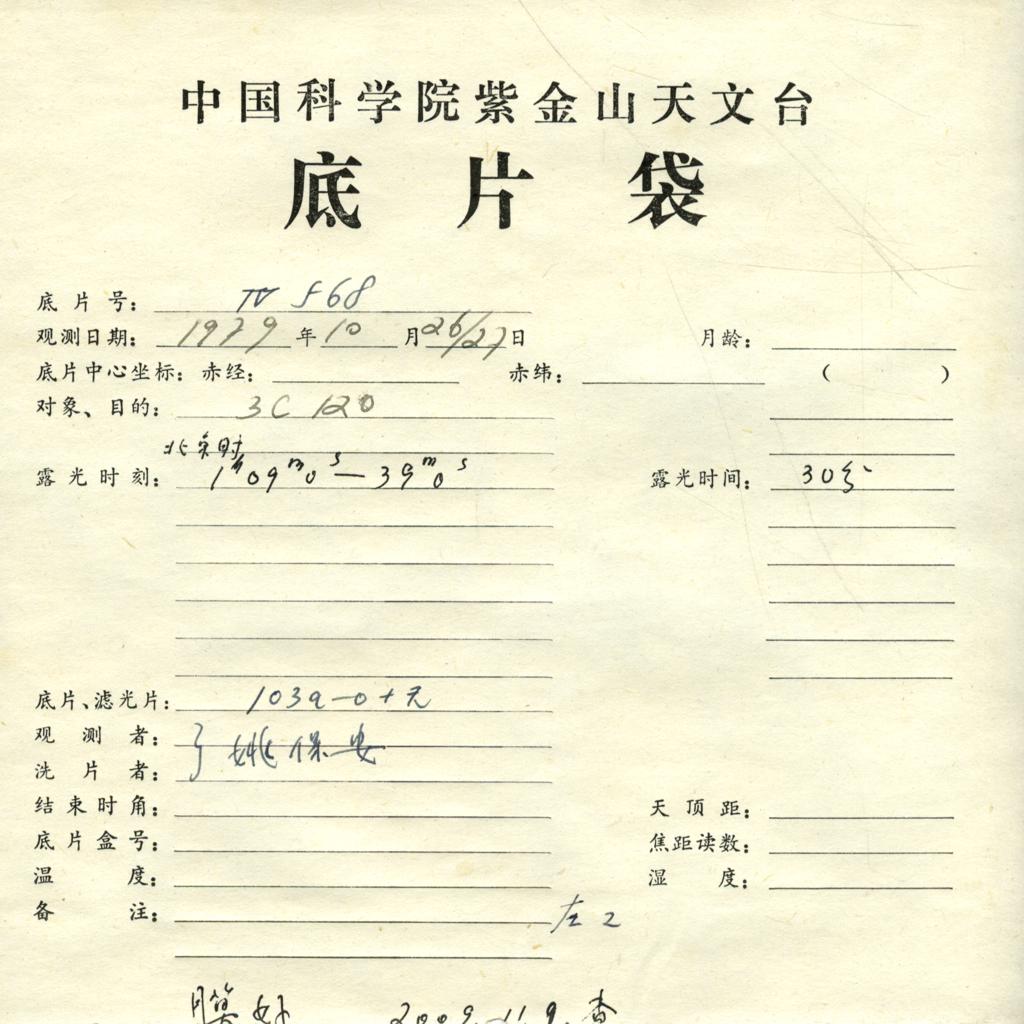 中国科学院紫金山天文台
底片袋
底片号: IV 568
观测日期: 1979年10月26/27日 月龄:
底片中心坐标: 赤经: 赤纬: ( )
对象、目的: 3C 120
北京时
露光时刻: 1h09m0s—39m0s 露光时间: 30分
底片、滤光片: 103a-0+无
观测者: 姚保安
洗片者:
结束时角: 天顶距:
底片盒号: 焦距读数:
温度: 湿度:
备注: 左2
2009.11.9.查